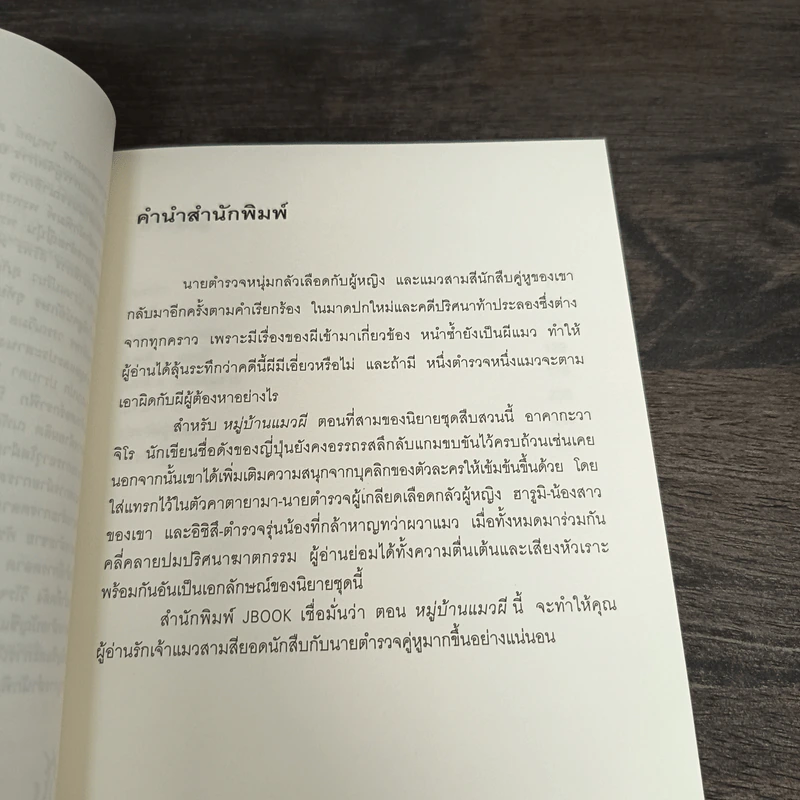 คำนำสำนักพิมพ์
นายตำรวจหนุ่มกลัวเลือดกับผู้หญิง และแมวสามสีนักสืบคู่หูของเขา
กลับมาอีกครั้งตามคำเรียกร้อง ในมาดปกใหม่และคดีปริศนาท้าประลองซึ่งต่าง
จากทุกคราว เพราะมีเรื่องของผีเข้ามาเกี่ยวข้อง หนำซ้ำยังเป็นผีแมว ทำให้
ผู้อ่านได้ลุ้นระทึกว่าคดีนี้ผีมีเอี่ยวหรือไม่ และถ้ามี หนึ่งตำรวจหนึ่งแมวจะตาม
เอาผิดกับผีผู้ต้องหาอย่างไร
สำหรับ หมู่บ้านแมวผี ตอนที่สามของนิยายชุดสืบสวนนี้ อาคากะวา
จิโร นักเขียนชื่อดังของญี่ปุ่นยังคงอรรถรสลึกลับแกมขบขันไว้ครบถ้วนเช่นเคย
นอกจากนั้นเขาได้เพิ่มเติมความสนุกจากบุคลิกของตัวละครให้เข้มข้นขึ้นด้วย โดย
ใส่แทรกไว้ในตัวคาตายามา-นายตำรวจผู้เกลียดเลือดกลัวผู้หญิง ฮารูมิ-น้องสาว
ของเขา และอิชิสึ-ตำรวจรุ่นน้องที่กล้าหาญทว่าผวาแมว เมื่อทั้งหมดมาร่วมกัน
คลี่คลายปมปริศนาฆาตกรรม ผู้อ่านย่อมได้ทั้งความตื่นเต้นและเสียงหัวเราะ
พร้อมกันอันเป็นเอกลักษณ์ของนิยายชุดนี้
สำนักพิมพ์ JBOOK เชื่อมั่นว่า ตอน หมู่บ้านแมวผี นี้ จะทำให้คุณ
ผู้อ่านรักเจ้าแมวสามสียอดนักสืบกับนายตำรวจคู่หูมากขึ้นอย่างแน่นอน